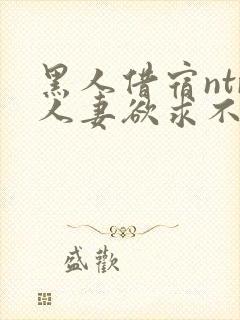 黑人借宿nt
人妻欲求不
盛歡